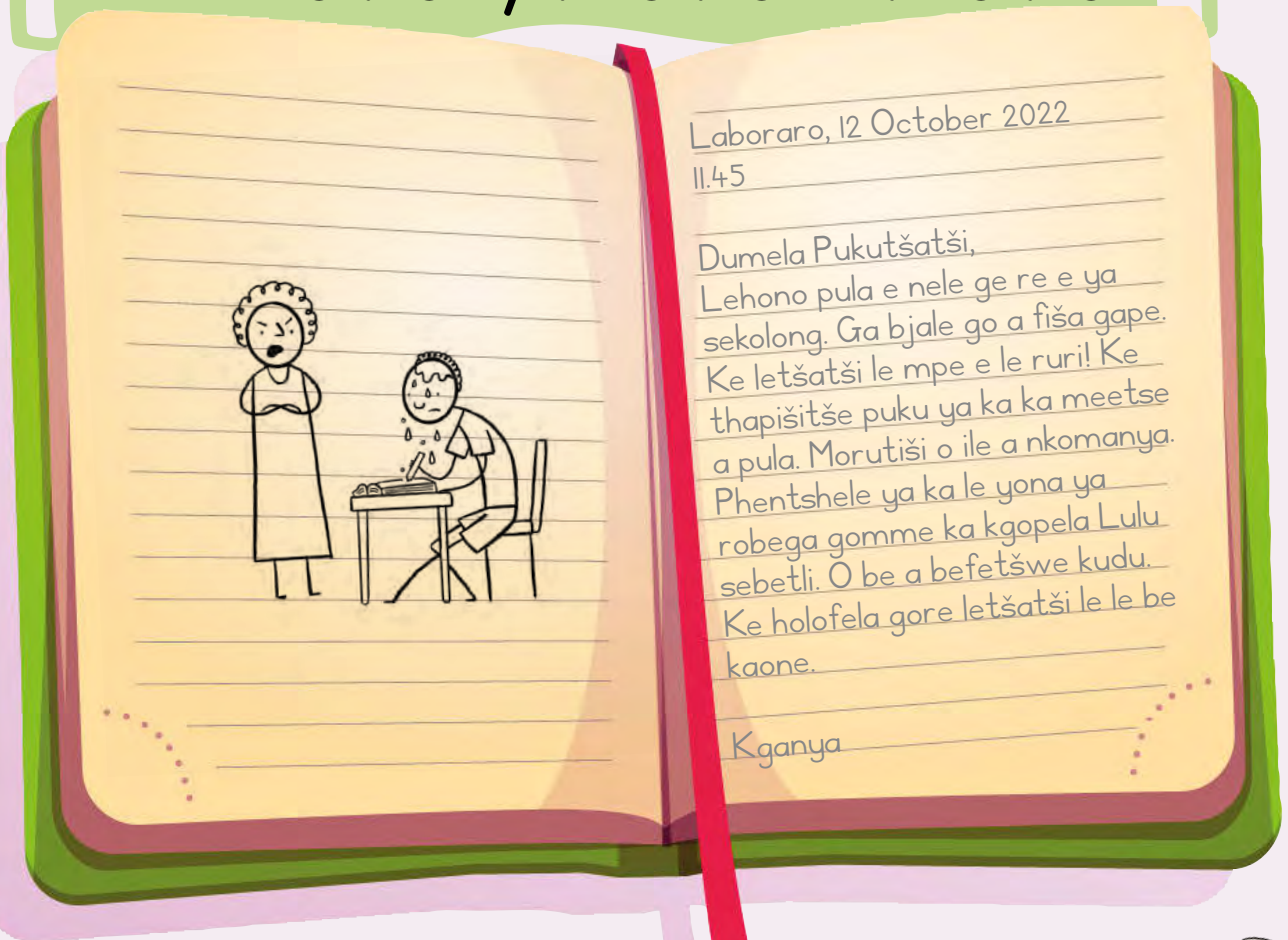 Laboraro, 12 October 2022
11.45
Dumela Pukutšatši,
Lehono pula e nele ge re e ya
sekolong. Ga bjale go a fiša gape.
Ke letšatši le mpe e le ruri! Ke
thapišitše puku ya ka ka meetse
a pula. Morutiši o ile a nkomanya.
Phentshele ya ka le yona ya
robega gomme ka kgopela Lulu
sebetli. O be a befetšwe kudu.
Ke holofela gore letšatši le le be
kaone.
Kganya